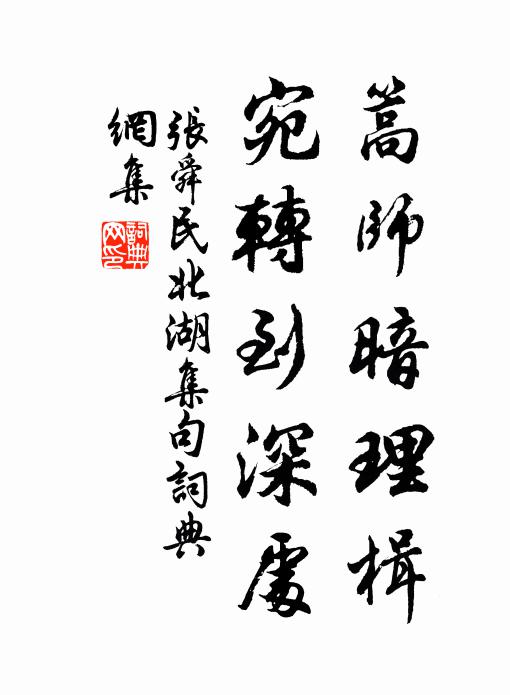 篙師暗理楫
宛轉到深處
張舜民北湖集句詞典
網集
詞典
网印